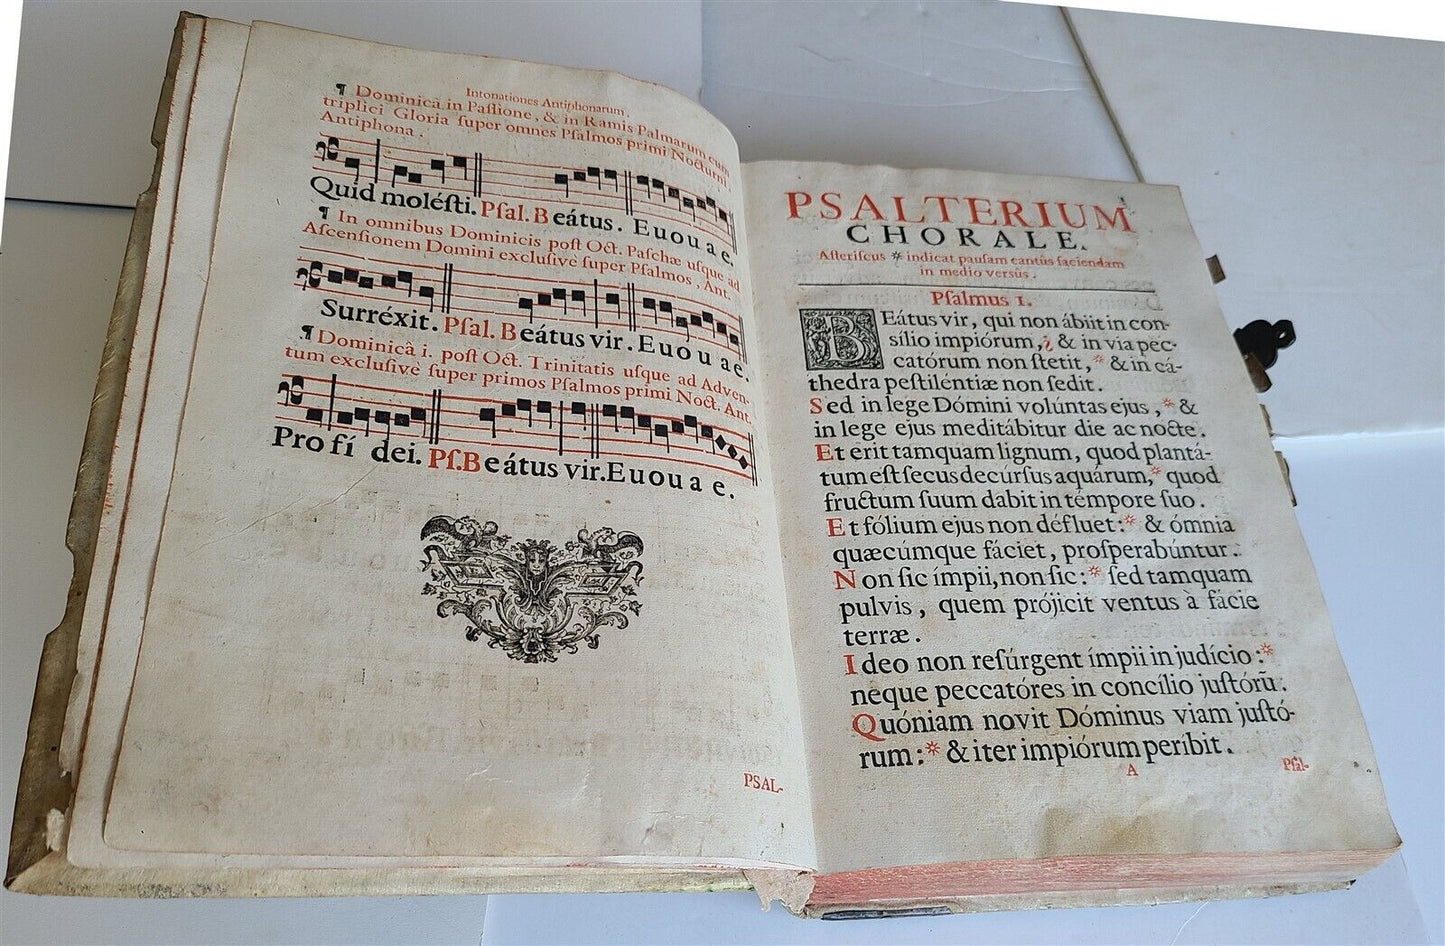 Intonationes Antiphonarum.
¶ Dominicâ in Paſſione, & in Ramis Palmarum cum
triplici Gloria ſuper omnes Pſalmos primi Nocturni,
Antiphona.
Quid moléſti. Pſal. Beátus. Euouae.
¶ In omnibus Dominicis poſt Oct. Paſchæ uſque ad
Aſcenſionem Domini excluſivè ſuper Pſalmos, Ant.
Surréxit. Pſal. Beátus vir. Euouae.
¶ Dominicâ i. poſt Oct. Trinitatis uſque ad Adven-
tum excluſivè ſuper primos Pſalmos primi Noct. Ant.
Pro fí dei. Pſ. Beátus vir. Euouae.
PSAL-
PSALTERIUM
CHORALE.
Aſteriſcus * indicat pauſam cantûs faciendam
in medio versûs.
Pſalmus 1.
BEátus vir, qui non ábiit in con-
sílio impiórum, & in via pec-
catórum non ſtetit, * & in cá-
thedra peſtiléntiæ non ſedit.
Sed in lege Dómini volúntas ejus, * &
in lege ejus meditábitur die ac nocte.
Et erit tamquam lignum, quod plantá-
tum eſt ſecus decúrſus aquárum, * quod
fructum ſuum dabit in témpore ſuo.
Et fólium ejus non défluet: * & ómnia
quæcúmque fáciet, proſperabúntur.
Non ſic ímpii, non ſic: * ſed tamquam
pulvis, quem prójicit ventus à fácie
terræ.
Ideo non reſúrgent ímpii in judício: *
neque peccatóres in concílio juſtórū.
Quóniam novit Dóminus viam juſtó-
rum: * & iter impiórum períbit.
A
Pſal-